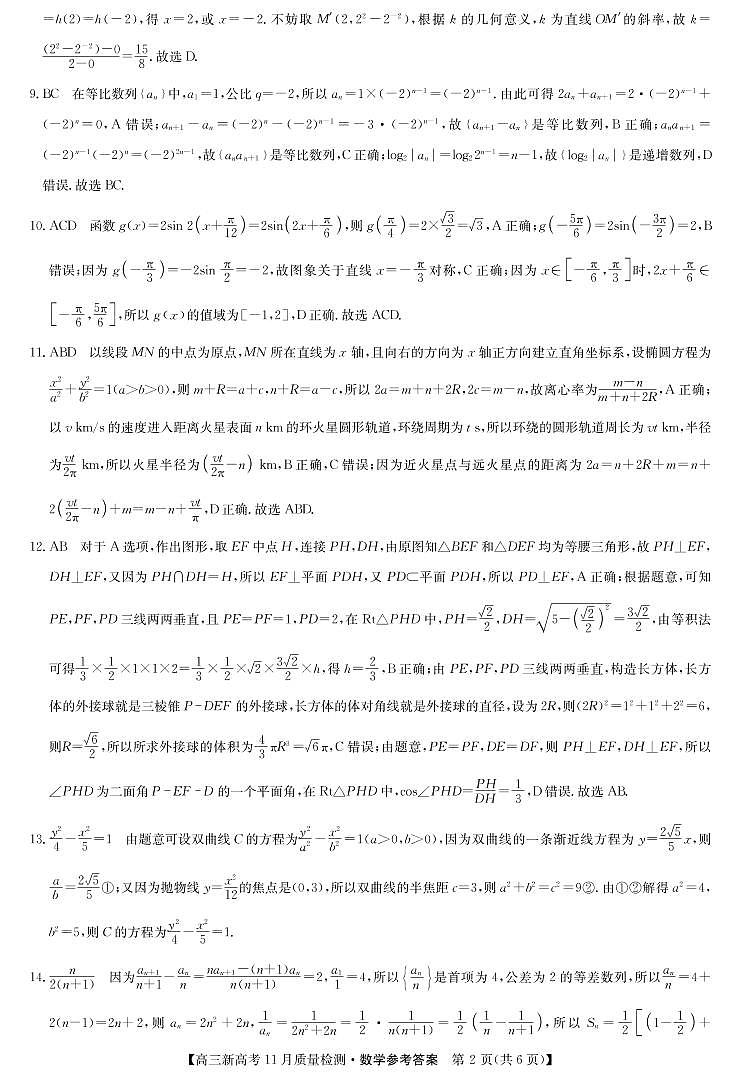 =h(2)=h(-2),得 x=2,或 x=-2. 不妨取 M′(2,2²-2⁻²),根据 k 的几何意义,k 为直线 OM′的斜率,故 k=
\frac{(2²-2⁻²)-0}{2-0}=\frac{15}{8}. 故选 D.
9. BC 在等比数列{aₙ}中,a₁=1,公比 q=-2,所以 aₙ=1×(-2)ⁿ⁻¹=(-2)ⁿ⁻¹. 由此可得 2aₙ+aₙ₊₁=2·(-2)ⁿ⁻¹+
(-2)ⁿ=0,A 错误;aₙ₊₁-aₙ=(-2)ⁿ-(-2)ⁿ⁻¹=-3·(-2)ⁿ⁻¹,故{aₙ₊₁-aₙ}是等比数列,B 正确;aₙaₙ₊₁=
(-2)ⁿ⁻¹(-2)ⁿ=(-2)²ⁿ⁻¹,故{aₙaₙ₊₁}是等比数列,C 正确;log₂|aₙ|=log₂2ⁿ⁻¹=n-1,故{log₂|aₙ|}是递增数列,D
错误. 故选 BC.
10. ACD 函数 g(x)=2sin 2(x+\frac{π}{12})=2sin(2x+\frac{π}{6}),则 g(\frac{π}{4})=2×\frac{√3}{2}=√3,A 正确;g(-\frac{5π}{6})=2sin(-\frac{3π}{2})=2,B
错误;因为 g(-\frac{π}{3})=-2sin \frac{π}{2}=-2,故图象关于直线 x=-\frac{π}{3} 对称,C 正确;因为 x∈[-\frac{π}{6},\frac{π}{3}]时,2x+\frac{π}{6}∈
[-\frac{π}{6},\frac{5π}{6}],所以 g(x)的值域为[-1,2],D 正确. 故选 ACD.
11. ABD 以线段 MN 的中点为原点,MN 所在直线为 x 轴,且向右的方向为 x 轴正方向建立直角坐标系,设椭圆方程为
\frac{x²}{a²}+\frac{y²}{b²}=1(a>b>0),则 m+R=a+c,n+R=a-c,所以 2a=m+n+2R,2c=m-n,故离心率为\frac{m-n}{m+n+2R},A 正确;
以 v km/s 的速度进入距离火星表面 n km 的环火星圆形轨道,环绕周期为 t s,所以环绕的圆形轨道周长为 vt km,半径
为\frac{vt}{2π} km,所以火星半径为(\frac{vt}{2π}-n) km,B 正确,C 错误;因为近火星点与远火星点的距离为 2a=n+2R+m=n+
2(\frac{vt}{2π}-n)+m=m-n+\frac{vt}{π},D 正确. 故选 ABD.
12. AB 对于 A 选项,作出图形,取 EF 中点 H,连接 PH,DH,由原图知△BEF 和△DEF 均为等腰三角形,故 PH⊥EF,
DH⊥EF,又因为 PH∩DH=H,所以 EF⊥平面 PDH,又 PD⊂平面 PDH,所以 PD⊥EF,A 正确;根据题意,可知
PE,PF,PD 三线两两垂直,且 PE=PF=1,PD=2,在 Rt△PHD 中,PH=\frac{√2}{2},DH=\sqrt{5-(\frac{√2}{2})²}=\frac{3√2}{2},由等积法
可得\frac{1}{3}×\frac{1}{2}×1×1×2=\frac{1}{3}×\frac{1}{2}×√2×\frac{3√2}{2}×h,得 h=\frac{2}{3},B 正确;由 PE,PF,PD 三线两两垂直,构造长方体,长方
体的外接球就是三棱锥 P-DEF 的外接球,长方体的体对角线就是外接球的直径,设为 2R,则(2R)²=1²+1²+2²=6,
则R=\frac{√6}{2},所以所求外接球的体积为\frac{4}{3}πR³=√6π,C 错误;由题意,PE=PF,DE=DF,则 PH⊥EF,DH⊥EF,所以
∠PHD 为二面角 P-EF-D 的一个平面角,在 Rt△PHD 中,cos∠PHD=\frac{PH}{DH}=\frac{1}{3},D 错误. 故选 AB.
13. \frac{y²}{4}-\frac{x²}{5}=1 由题意可设双曲线 C 的方程为\frac{y²}{a²}-\frac{x²}{b²}=1(a>0,b>0),因为双曲线的一条渐近线方程为 y=\frac{2√5}{5}x,则
\frac{a}{b}=\frac{2√5}{5}①;又因为抛物线 y=\frac{x²}{12}的焦点是(0,3),所以双曲线的半焦距 c=3,则 a²+b²=c²=9②. 由①②解得 a²=4,
b²=5,则 C 的方程为\frac{y²}{4}-\frac{x²}{5}=1.
14. \frac{n}{2(n+1)} 因为\frac{aₙ₊₁}{n+1}-\frac{aₙ}{n}=\frac{naₙ₊₁-(n+1)aₙ}{n(n+1)}=2,\frac{a₁}{1}=4,所以{\frac{aₙ}{n}}是首项为 4,公差为 2 的等差数列,所以\frac{aₙ}{n}=4+
2(n-1)=2n+2,则 aₙ=2n²+2n,\frac{1}{aₙ}=\frac{1}{2n²+2n}=\frac{1}{2}·\frac{1}{n(n+1)}=\frac{1}{2}(\frac{1}{n}-\frac{1}{n+1}),所以 Sₙ=\frac{1}{2}[(1-\frac{1}{2})+
【高三新高考 11 月质量检测·数学参考答案 第 2 页(共 6 页)】